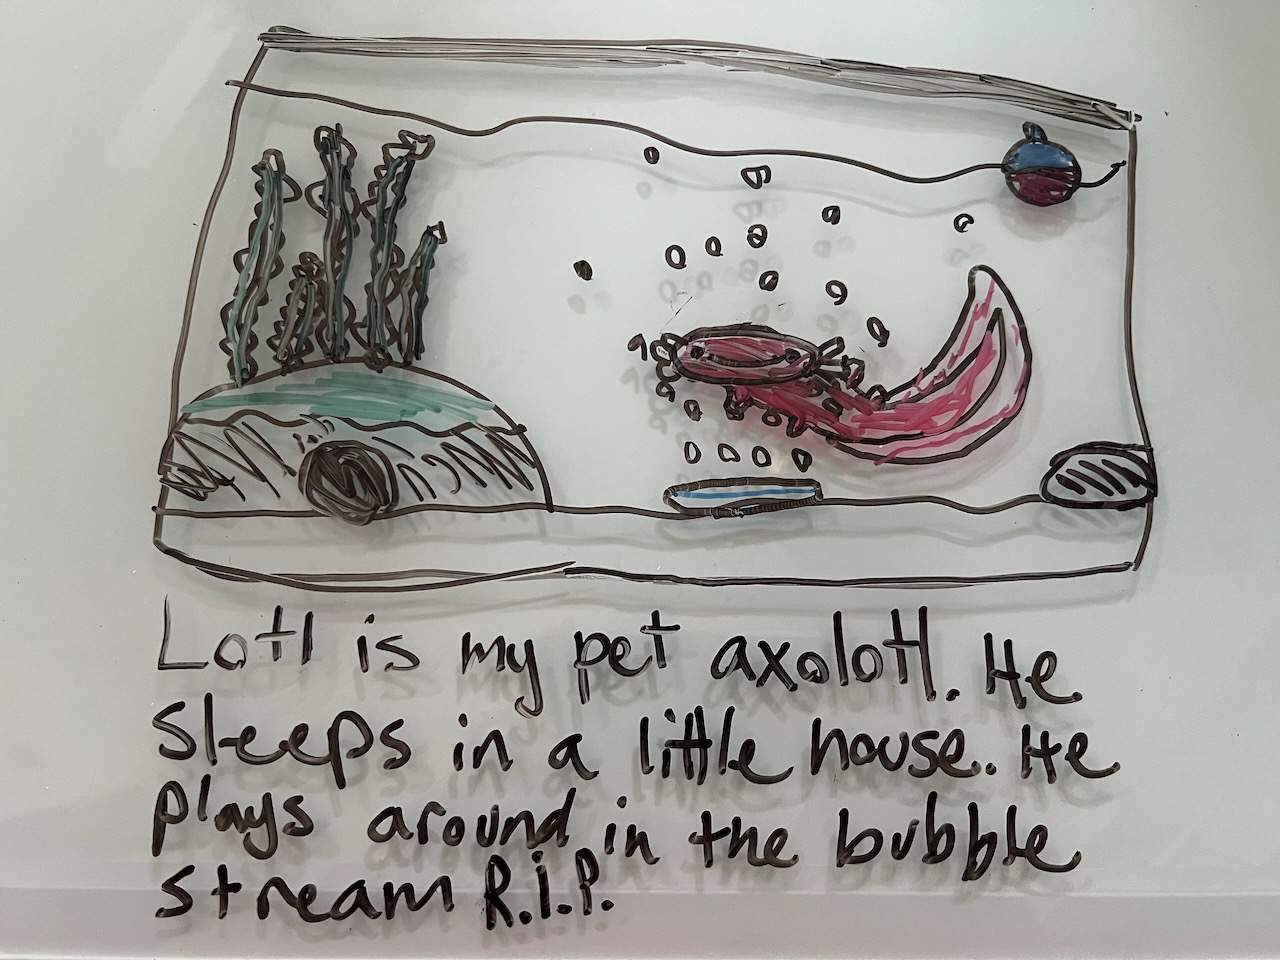 Lotl is my pet axolotl. He
sleeps in a little house. He
plays around in the bubble
stream R.i.P.